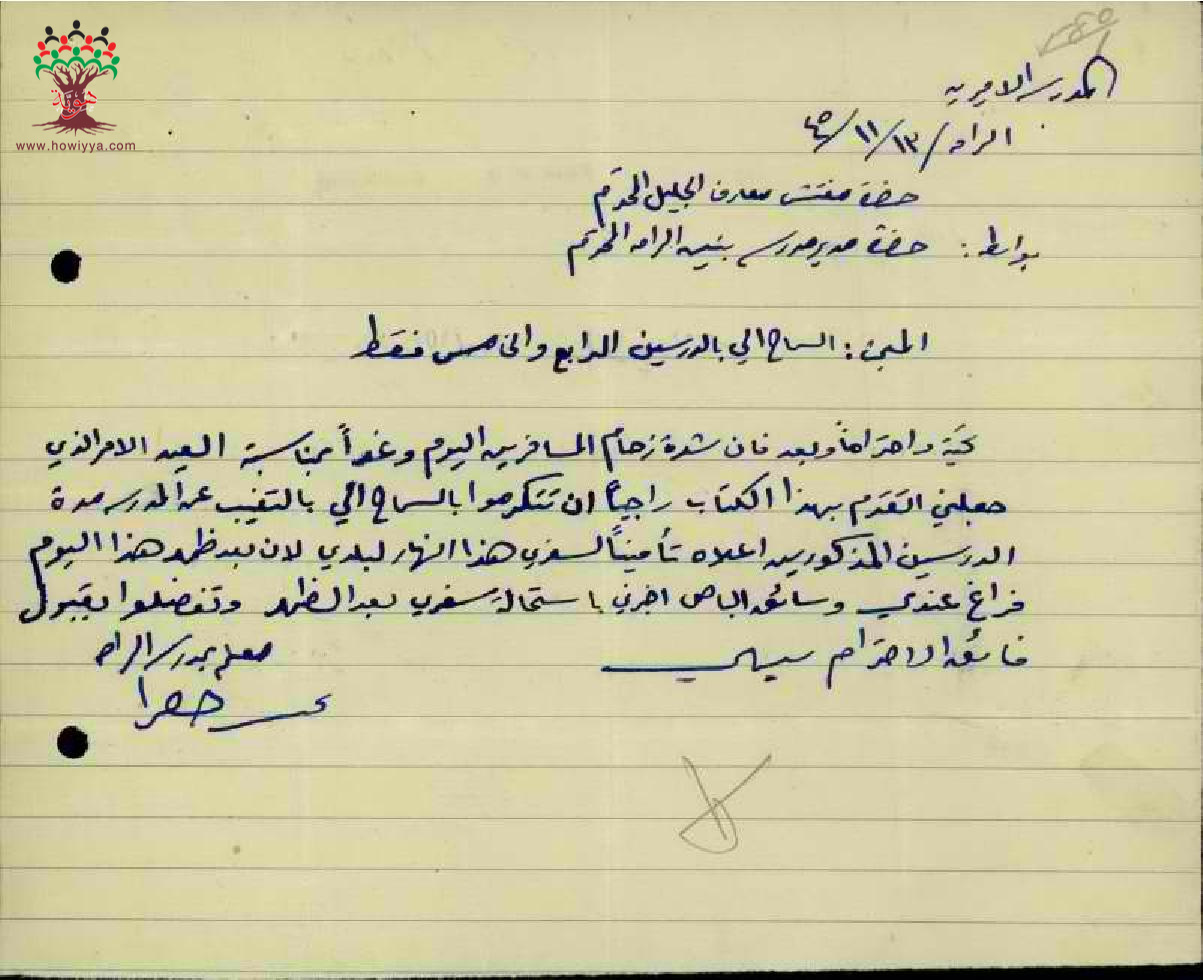 المدرسة الاميرية
الرامه / ١٣/ ١١/ ٤٥
حضرة مفتش معارف الجليل المحترم
بواسطة: حضرة مدير مدرسة بنين الرامه المحترم
المبحث: السماح الي بالدرسين الرابع والخامس فقط
تحية واحتراماً وبعد فان شدة زحام المسافرين اليوم وغداً بمناسبة العيد الامر الذي
جعلني التقدم بهذا الكتاب راجياً ان تتكرموا بالسماح الي بالتغيب عن المدرسة مدة
الدرسين المذكورين اعلاه تأميناً لسفري هذا النهار لبلدي لان بعد ظهر هذا اليوم
فراغ عندي وسائق الباص اخبرني باستحالة سفري بعد الظهر وتفضلوا بقبول
فائق الاحترام سيدي
معلم بمدرسة الرامه
هوية
www.howiyya.com